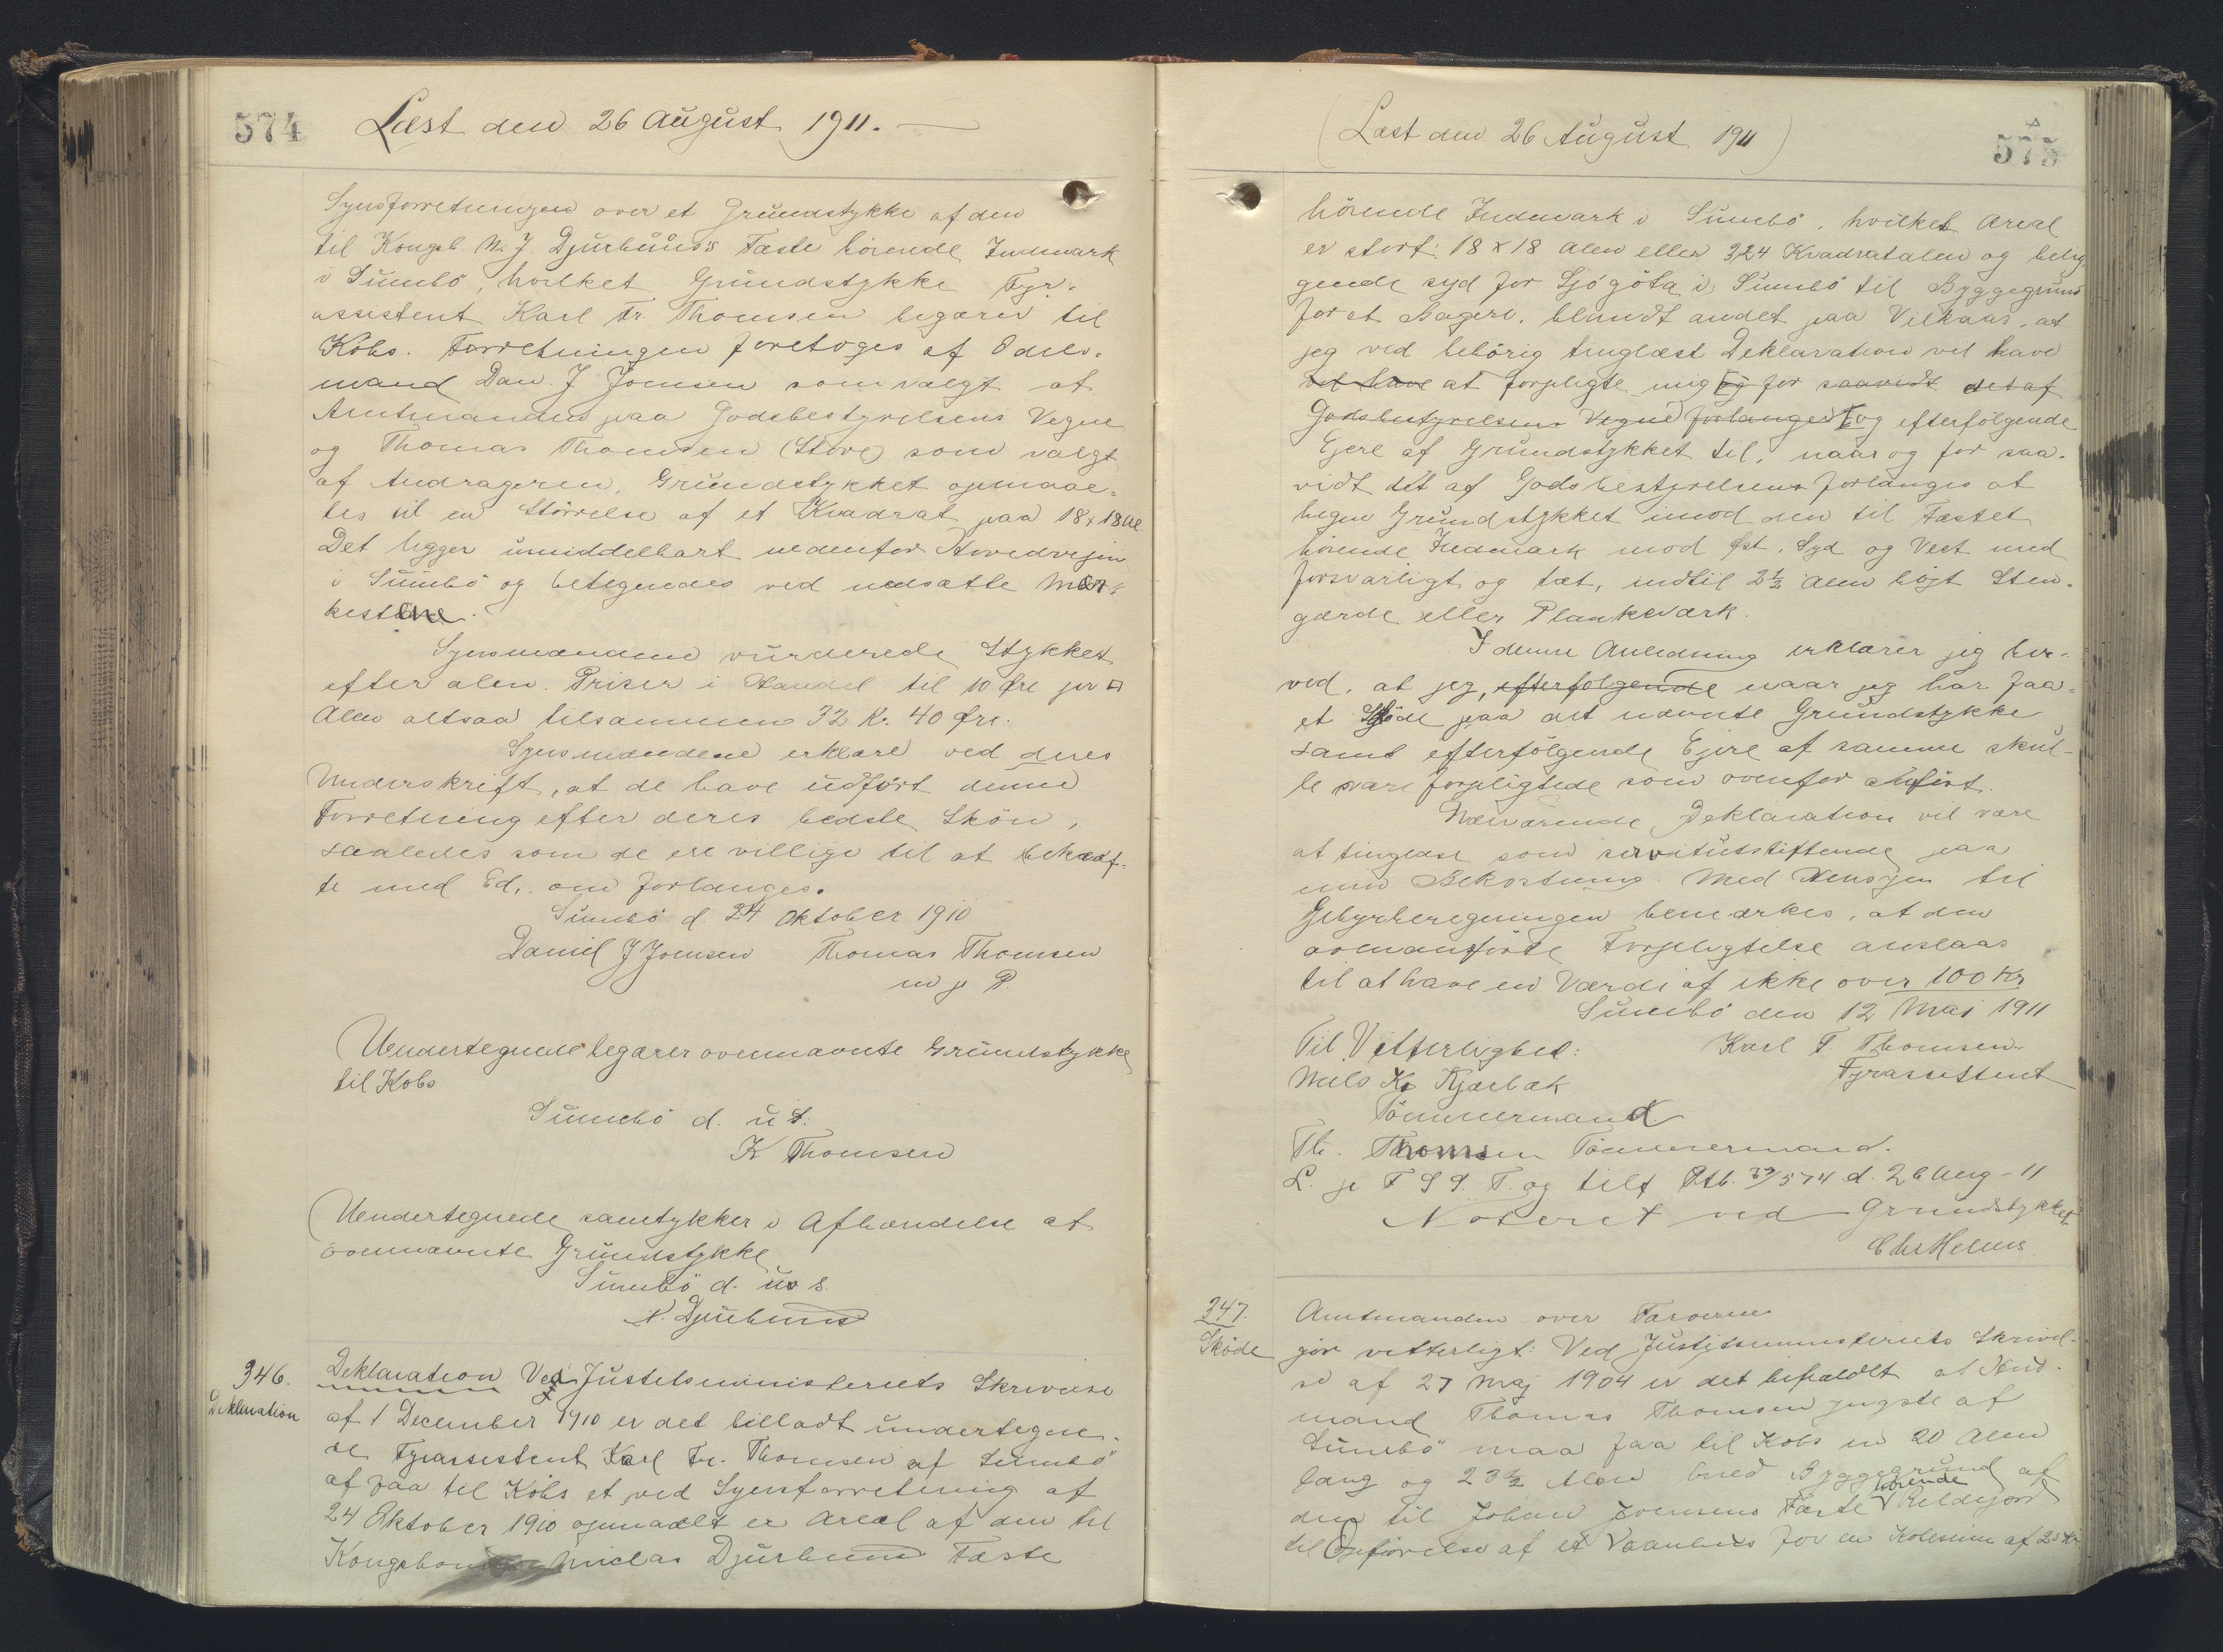 574
Læst den 26 August 1911.
Synsforretningen over et Grundstykke af den
til Kongsb N. J. Djurhuus's Fæste hörende Indmark
i Sumbö, hvilket Grundstykke Fyr-
assistent Karl Fr. Thomsen begærer til
Köbs. Forretningen foretoges af Odels-
mand Dan. J Joensen som valgt af
Amtmanden paa Godsbestyrelsens Vegne
og Thomas Thomsen (Störe) som valgt
af Andrageren. Grundstykket opmaal-
tes til en Störrelse af et Kvadrat paa 18 x 18 Al
Det ligger umiddelbart nedenfor Hovedvejen
i Sumbö og betegnedes ved nedsatte Mær-
kestene.
Synsmændene vurderede Stykket
efter alm. Priser i Handel til 10 Øre pr □
Alen altsaa tilsammen 32 Kr. 40 Øre.
Synsmændene erklære ved deres
Underskrift, at de have udfört denne
Forretning efter deres bedste Skön,
saaledes som de ere villige til at bekræf-
te med Ed, om forlanges.
Sumbö d. 24 Oktober 1910
Daniel J Joensen Thomas Thomsen
m p P.
Undertegnede begærer ovennævnte Grundstykke
til Kobs
Sumbö d. u S.
K Thomsen
Undertegnede samtykker i Afhændelse af
ovennævnte Grundstykke
Sumbö d. us s.
N. Djurhuus
346.
Deklaration
Deklaration Ved Justitsministeriets Skrivelse
af 1 December 1910 er det tilladt undertegne-
de Fyrassistent Karl Fr. Thomsen af Sumbö
at faa til Köbs et ved Synsforretning af
24 Oktober 1910 opmaalt er Areal af den til
Kongsbonde Niclas Djurhuus Fæste
(Læst den 26 August 1911)
575
hörende Indmark i Sumbö, hvilket Areal
er stort: 18 x 18 Alen eller 324 Kvadratalen og belig
gende syd for Sjógöta i Sumbö til Byggegrund
for et Bageri, blandt andet paa Vilkaar, at
jeg ved behörig tinglæst Deklaration vil have
vil have at forpligte mig og for saavidt det af
Godsbestyrelsens Vegne forlanges og efterfölgende
Ejere af Grundstykket til, naar og for saa-
vidt det af Godsbestyrelsen forlanges at
hegne Grundstykket imod den til Fæstet
hörende Indmark mod Øst, Syd og Vest med
forsvarligt og tæt, indtil 2½ Alen höjt Sten-
gærde eller Plankeværk.
I denne Anledning erklærer jeg her-
ved, at jeg, efterfölgende naar jeg har faa-
et Sköde paa det nævnte Grundstykke
samt efterfölgende Ejere af samme skul-
le være forpligtede som ovenfor anfört.
Nærværende Deklaration vil være
at tinglæse som servitutstiftende paa
min Bekostning. Med Hensyn til
Gebyrberegningen bemærkes, at den
ovenanförte Forpligtelse anslaas
til at have en Værdi af ikke over 100 Kr
Sumbö den 12 Maj 1911
Til Vitterlighed: Karl F. Thomsen
Fyrassistent
Niels Kr Kjærbæk
Tömmermand
Th. Thomsen Tömmermand.
L. p F S P. T. og tilf Ptb. 574 d. 26 Aug-11
Noteret ved Grundstykket
Chr Helms
347.
Sköde
Amtmanden over Færöerne
gör vitterligt: Ved Justitsministeriets Skrivel-
se af 27 Maj 1904 er det befaldt at
mand Thomas Thomsen yngste af
Sumbö maa faa til Köbs en 20 Alen
lang og 23½ Alen bred Byggegrund af
den til Johan Joensens Fæste hörende
til Opförelse af et Vaanhus for en Köbesum af 25 Kr